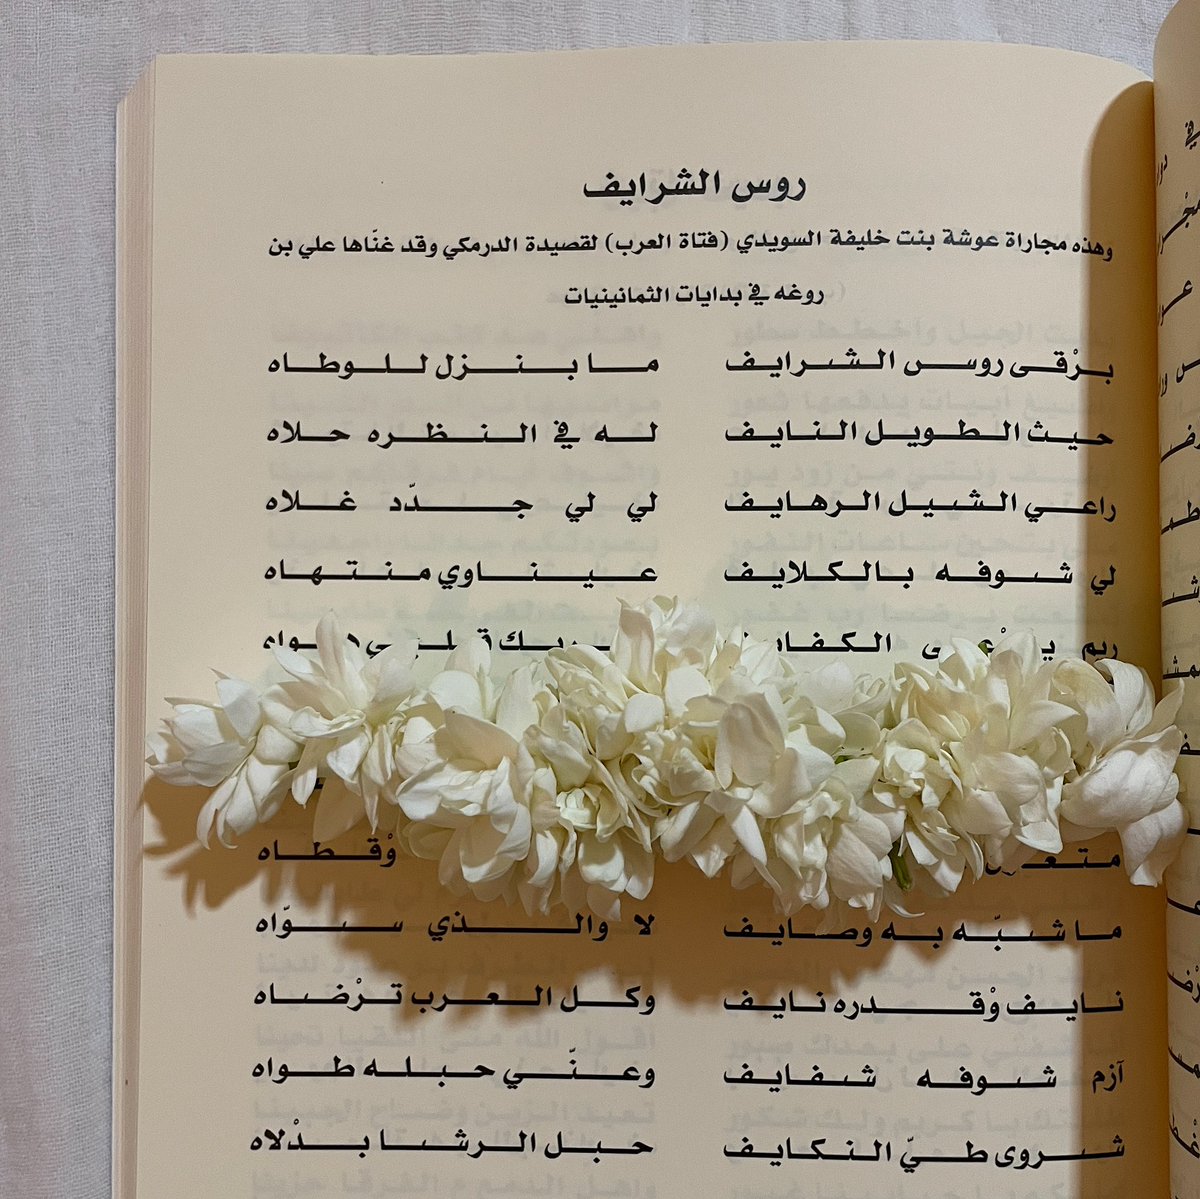 روس الشرايف
وهذه مجاراة عوشة بنت خليفة السويدي (فتاة العرب) لقصيدة الدرمكي وقد غنّاها علي بن
روغه في بدايات الثمانينيات
برْقى روس الشرايف ما بنزل للوطاه
حيث الطويل النايف له في النظره حلاه
راعي الشيل الرهايف لي لي جدّد غلاه
لي شوفه بالكلايف عيناوي منتهاه
ريم
وْقطاه
ما شبّه به وصايف لا والذي سوّاه
نايف وْقدره نايف وكل العرب ترْضاه
آزم شوفه شفايف وعنّي حبله طواه
شروى طيّ النكايف حبل الرشا بدْلاه